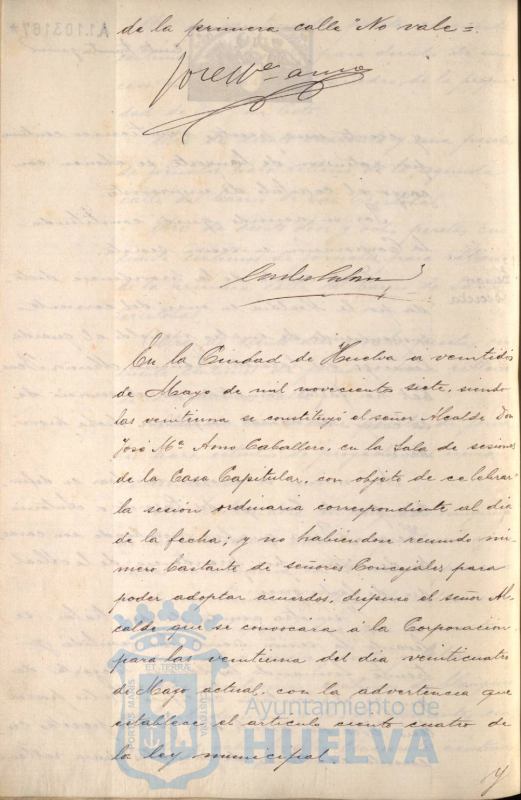 A1.103167*
de la primera calle "No vale =.
José Mª Amo
En la Ciudad de Huelva a veintidos
de Mayo de mil novecientos siete, siendo
las veintiuna se constituyó el señor Alcalde Don
José Mª Amo Caballero, en la Sala de sesiones
de la Casa Capitular, con objeto de celebrar
la sesión ordinaria correspondiente al dia
de la fecha; y no habiendose reunido nú-
mero bastante de señores Concejales para
poder adoptar acuerdos, dispuso el señor Al-
calde que se convocára á la Corporación
para las veintiuna del dia veinticuatro
de Mayo actual, con la advertencia que
establece el articulo ciento cuatro de
la ley municipal.
y
PORTUS MARIS ET TERRAE CUSTODIA
Ayuntamiento de
HUELVA